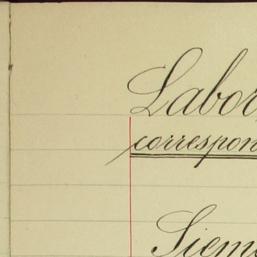 Labor
correspon
Sieme